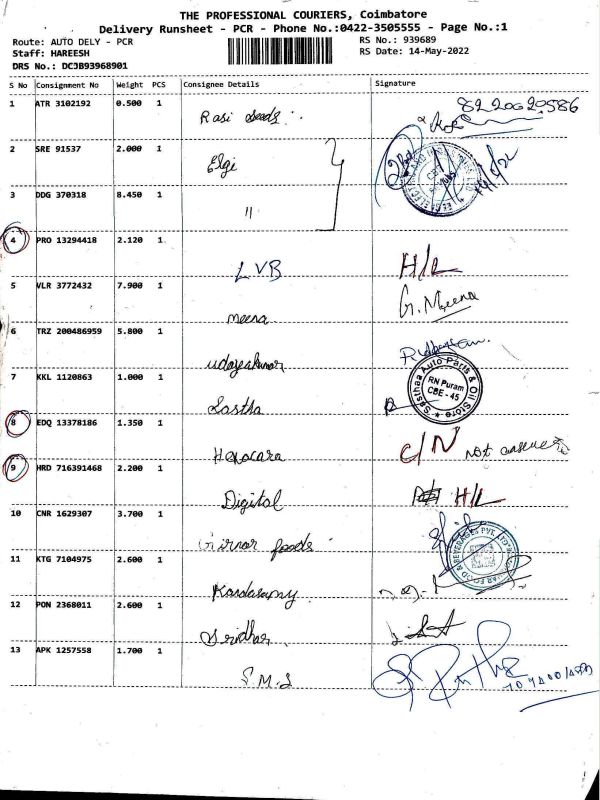 THE PROFESSIONAL COURIERS, Coimbatore
Delivery Runsheet - PCR - Phone No.:0422-3505555 - Page No.:1
Route: AUTO DELY - PCR
RS No.: 939689
Staff: HAREESH
RS Date: 14-May-2022
DRS No.: DC3B93968901
S No Consignment No Weight PCS Consignee Details Signature
1 ATR 3102192 0.500 1 Rasi seeds 8220629586
2 SRE 91537 2.000 1 Elgi
3 DDG 370318 8.450 1 "
4 PRO 13294418 2.120 1 LVB H/L
5 VLR 3772432 7.900 1 meena G. Meena
6 TRZ 200486959 5.800 1 udayakumar
7 KKL 1120863 1.000 1 Sastha
Sasthaa Auto Parts & Oil Store
RN Puram
CBE - 45
8 EDQ 13378186 1.350 1 C/N not
9 HRD 716391468 2.200 1 Digital H/L
10 CNR 1629307 3.700 1 Girnar foods
11 KTG 7104975 2.600 1 Kandasamy
12 PON 2368011 2.600 1 Sridhar
13 APK 1257558 1.700 1 S.M.S